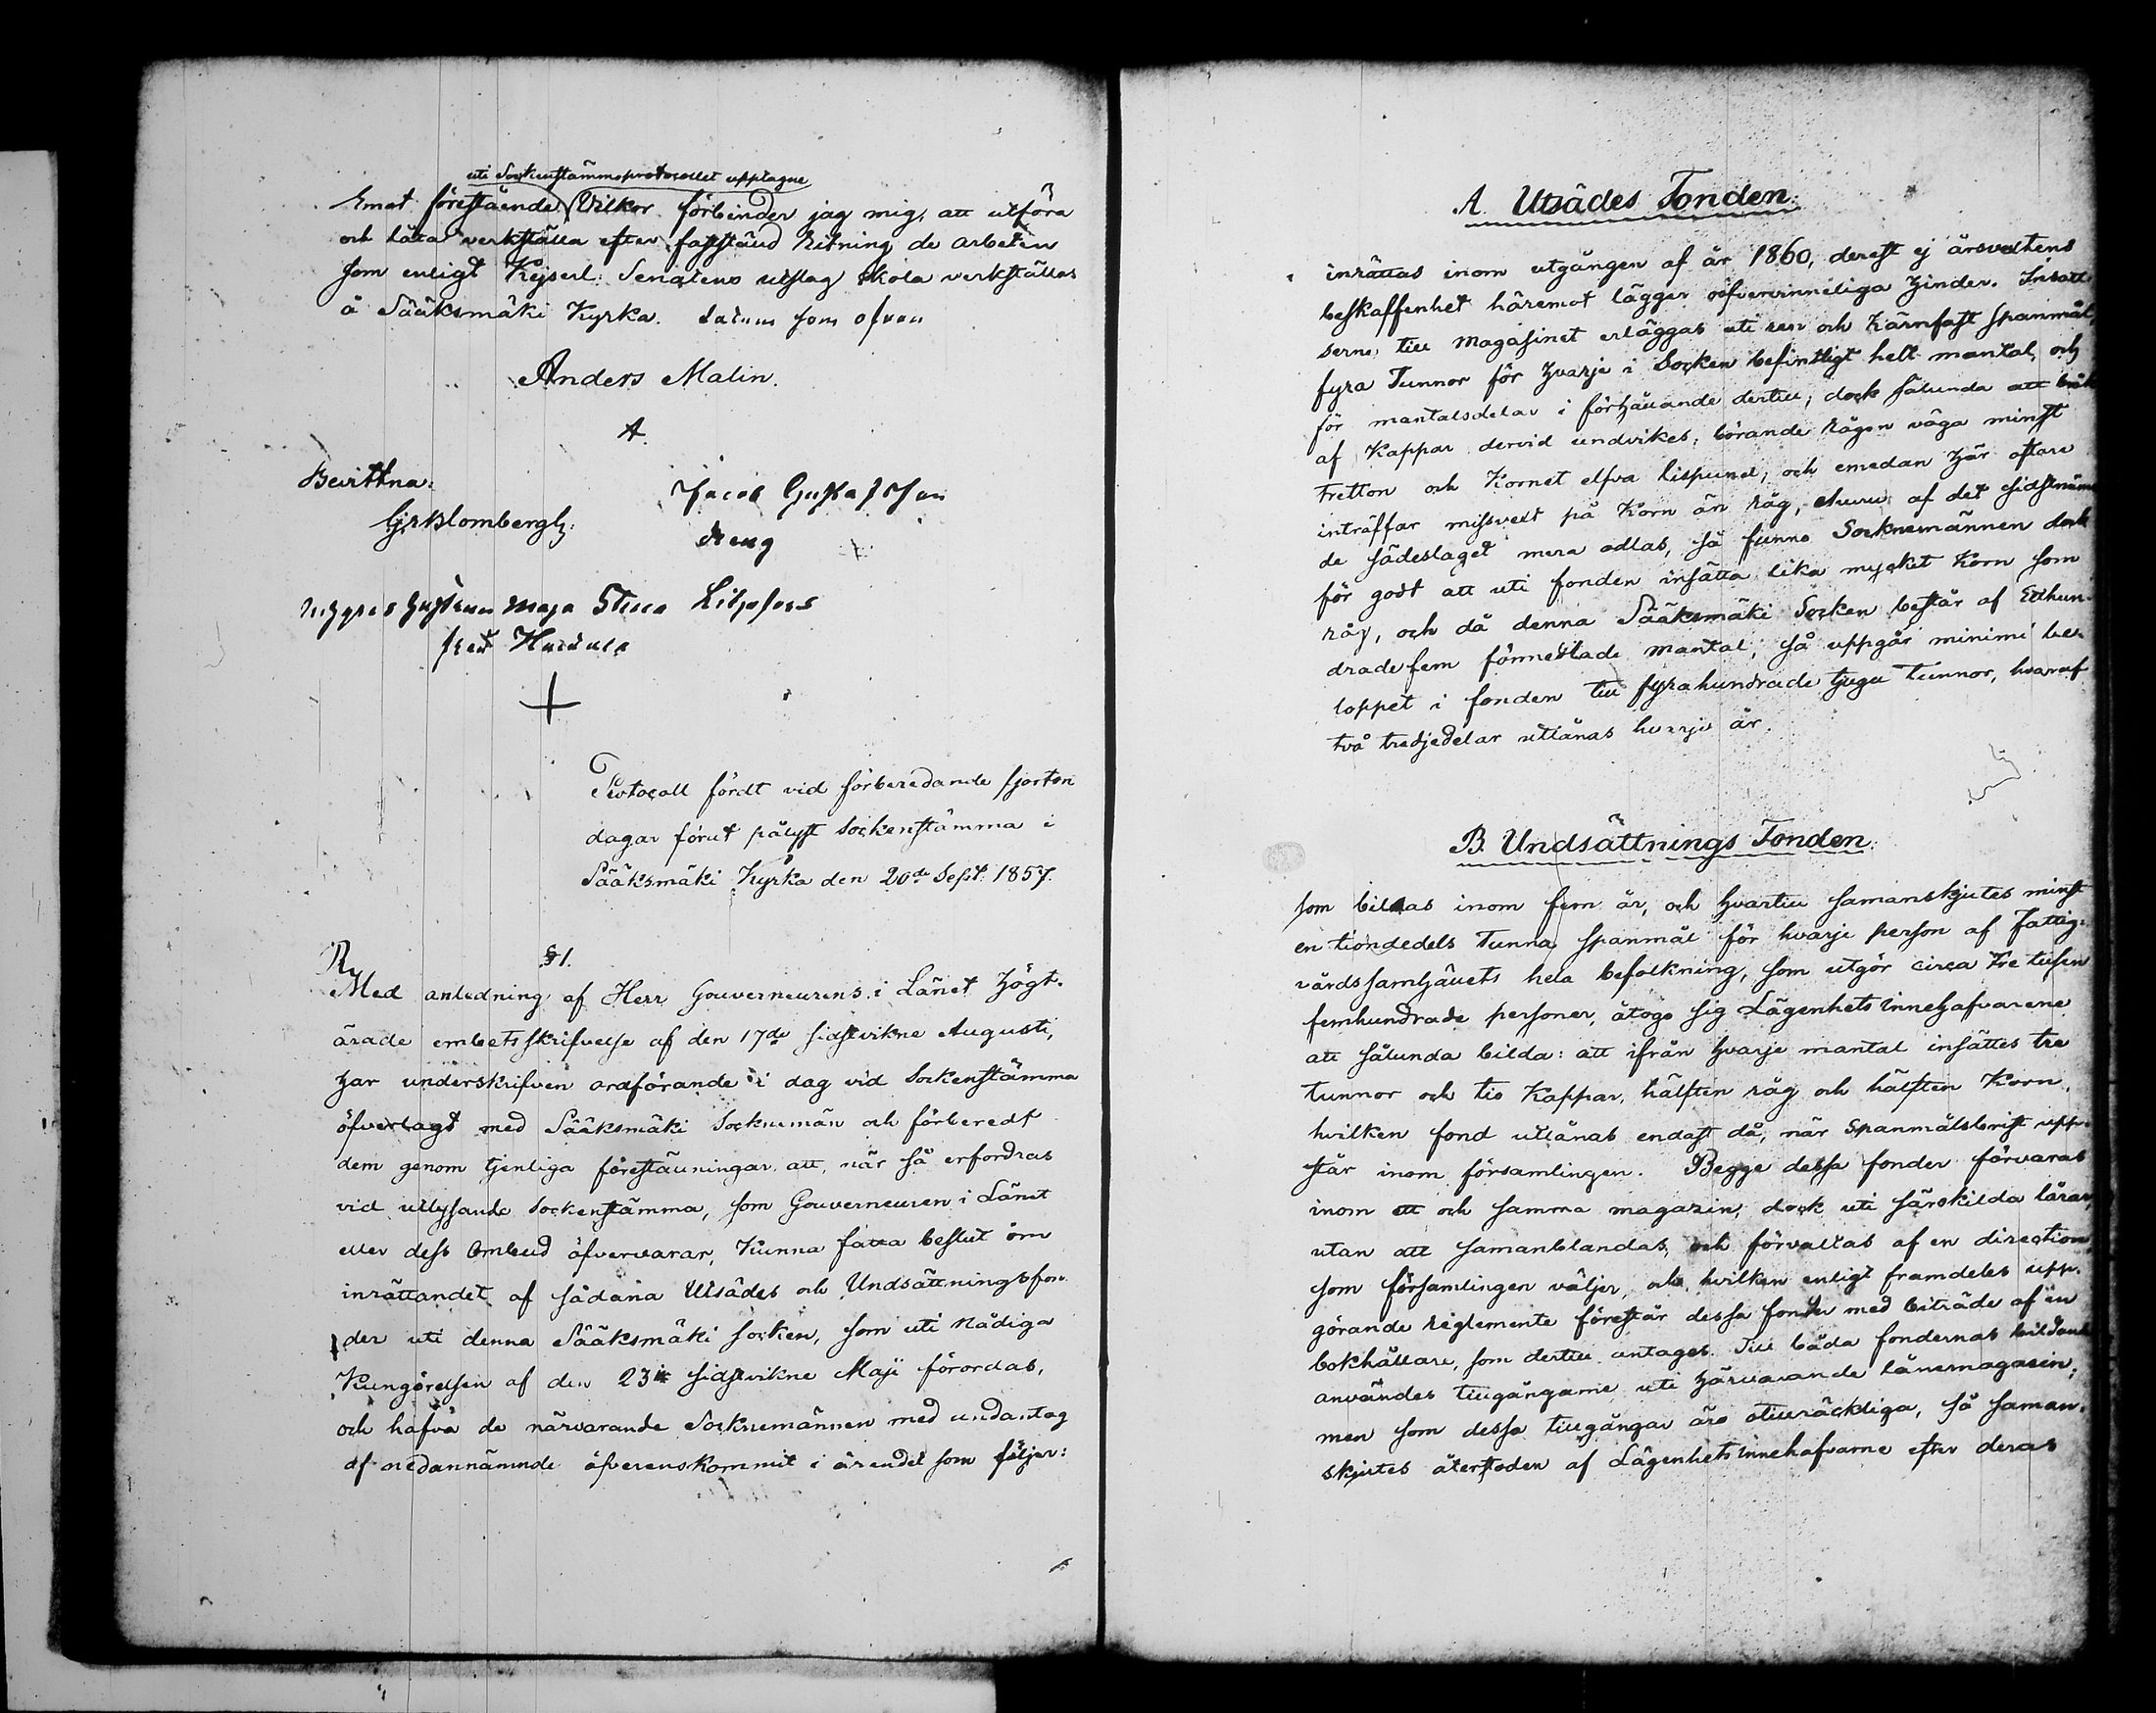 uti Sockenstämmoprotocollet upptagne
Emot förestående Vilkor förbinder jag mig, att utföra
och låta verkställa efter fastställd Ritning de arbeten
som enligt Kejserl: Senatens utslag skola verkställas
å Sääksmäki Kyrka. datum som ofvan
Anders Malin.
Bevittna:
Blombergh:
Jacob Gustafsson
dreng
Maja Stina
Protocoll fördt vid förberedande fjorton
dagar förut pålyst Sockenstämma i
Sääksmäki Kyrka den 20de Sept: 1857.
§1.
Med anledning af Herr Gouverneurens i Länet högt-
ärade embetsskrifvelse af den 17de sidstvikne Augusti,
har underskrifven ordförande i dag vid Sockenstämma
öfverlagt med Sääksmäki Socknemän och förberedt
dem genom tjenliga föreställningar att, när så erfordras
vid utlysande Sockenstämma, som Gouverneuren i Länet
eller dess Ombud öfvervarar, kunna fatta beslut om
inrättandet af sådana Utsädes och Undsättningsfon-
der uti denna Sääksmäki socken, som uti Nådiga
Kungörelsen af den 23 sidstvikne Maji förordas,
och hafva de närvarande Socknemännen med undantag
af nedannämnde öfverenskommit i ärendet som följer:
A. Utsädes Fonden.
inrättas inom utgången af år 1860, derest ej årsväxtens
beskaffenhet häremot lägger oöfvervinneliga hinder. Insatt-
serne till Magasinet erläggas uti ren och kärnfast spanmål,
fyra Tunnor för hvarje i Socken befintligt helt mantal, och
för mantalsdelar i förhållande dertill; dock sålunda att bråk
af Kappar dervid undvikes; börande Rågen väga minst
tretton och Kornet elfva lispund; och emedan här oftare
inträffar missvext på Korn än råg, ehuru af det sidstnäm-
de sädeslaget mera odlas, så funno Socknemännen dock
för godt att uti fonden insätta lika mycket Korn som
råg, och då denna Sääksmäki Socken består af Etthun-
drade fem förmedlade mantal, så uppgår minimi be-
loppet i fonden till fyrahundrade tjugu Tunnor, hvaraf
två tredjedelar utlånas hvarje år.
B. Undsättnings Fonden.
som bildas inom fem år, och hvartill samanskjutes minst
en tiondedels Tunna spanmål för hvarje person af Fattig-
vårdssamhällets hela befolkning, som utgör circa tre tusen
femhundrade personer, åtogo sig Lägenhetsinnehafvarene
att sålunda bilda: att ifrån hvarje mantal insättes tre
tunnor och tio Kappar, hälften råg och hälften Korn,
hvilken fond utlånas endast då, när Spanmålsbrist upp-
står inom församlingen. Begge dessa fonder förvaras
inom ett och samma magazin, dock uti särskilda lårar,
utan att samanblandas, och förvaltas af en direction,
som församlingen väljer, och hvilken enligt framdeles upp-
görande reglemente förestår dessa fonder med biträde af en
bokhållare, som dertill antages. Till båda fondernas bildande
användes tillgångarne uti härvarande lånemagasin;
men som dessa tillgångar äro otillräckliga, så saman-
skjutes återstoden af Lägenhetsinnehafvarne efter deras